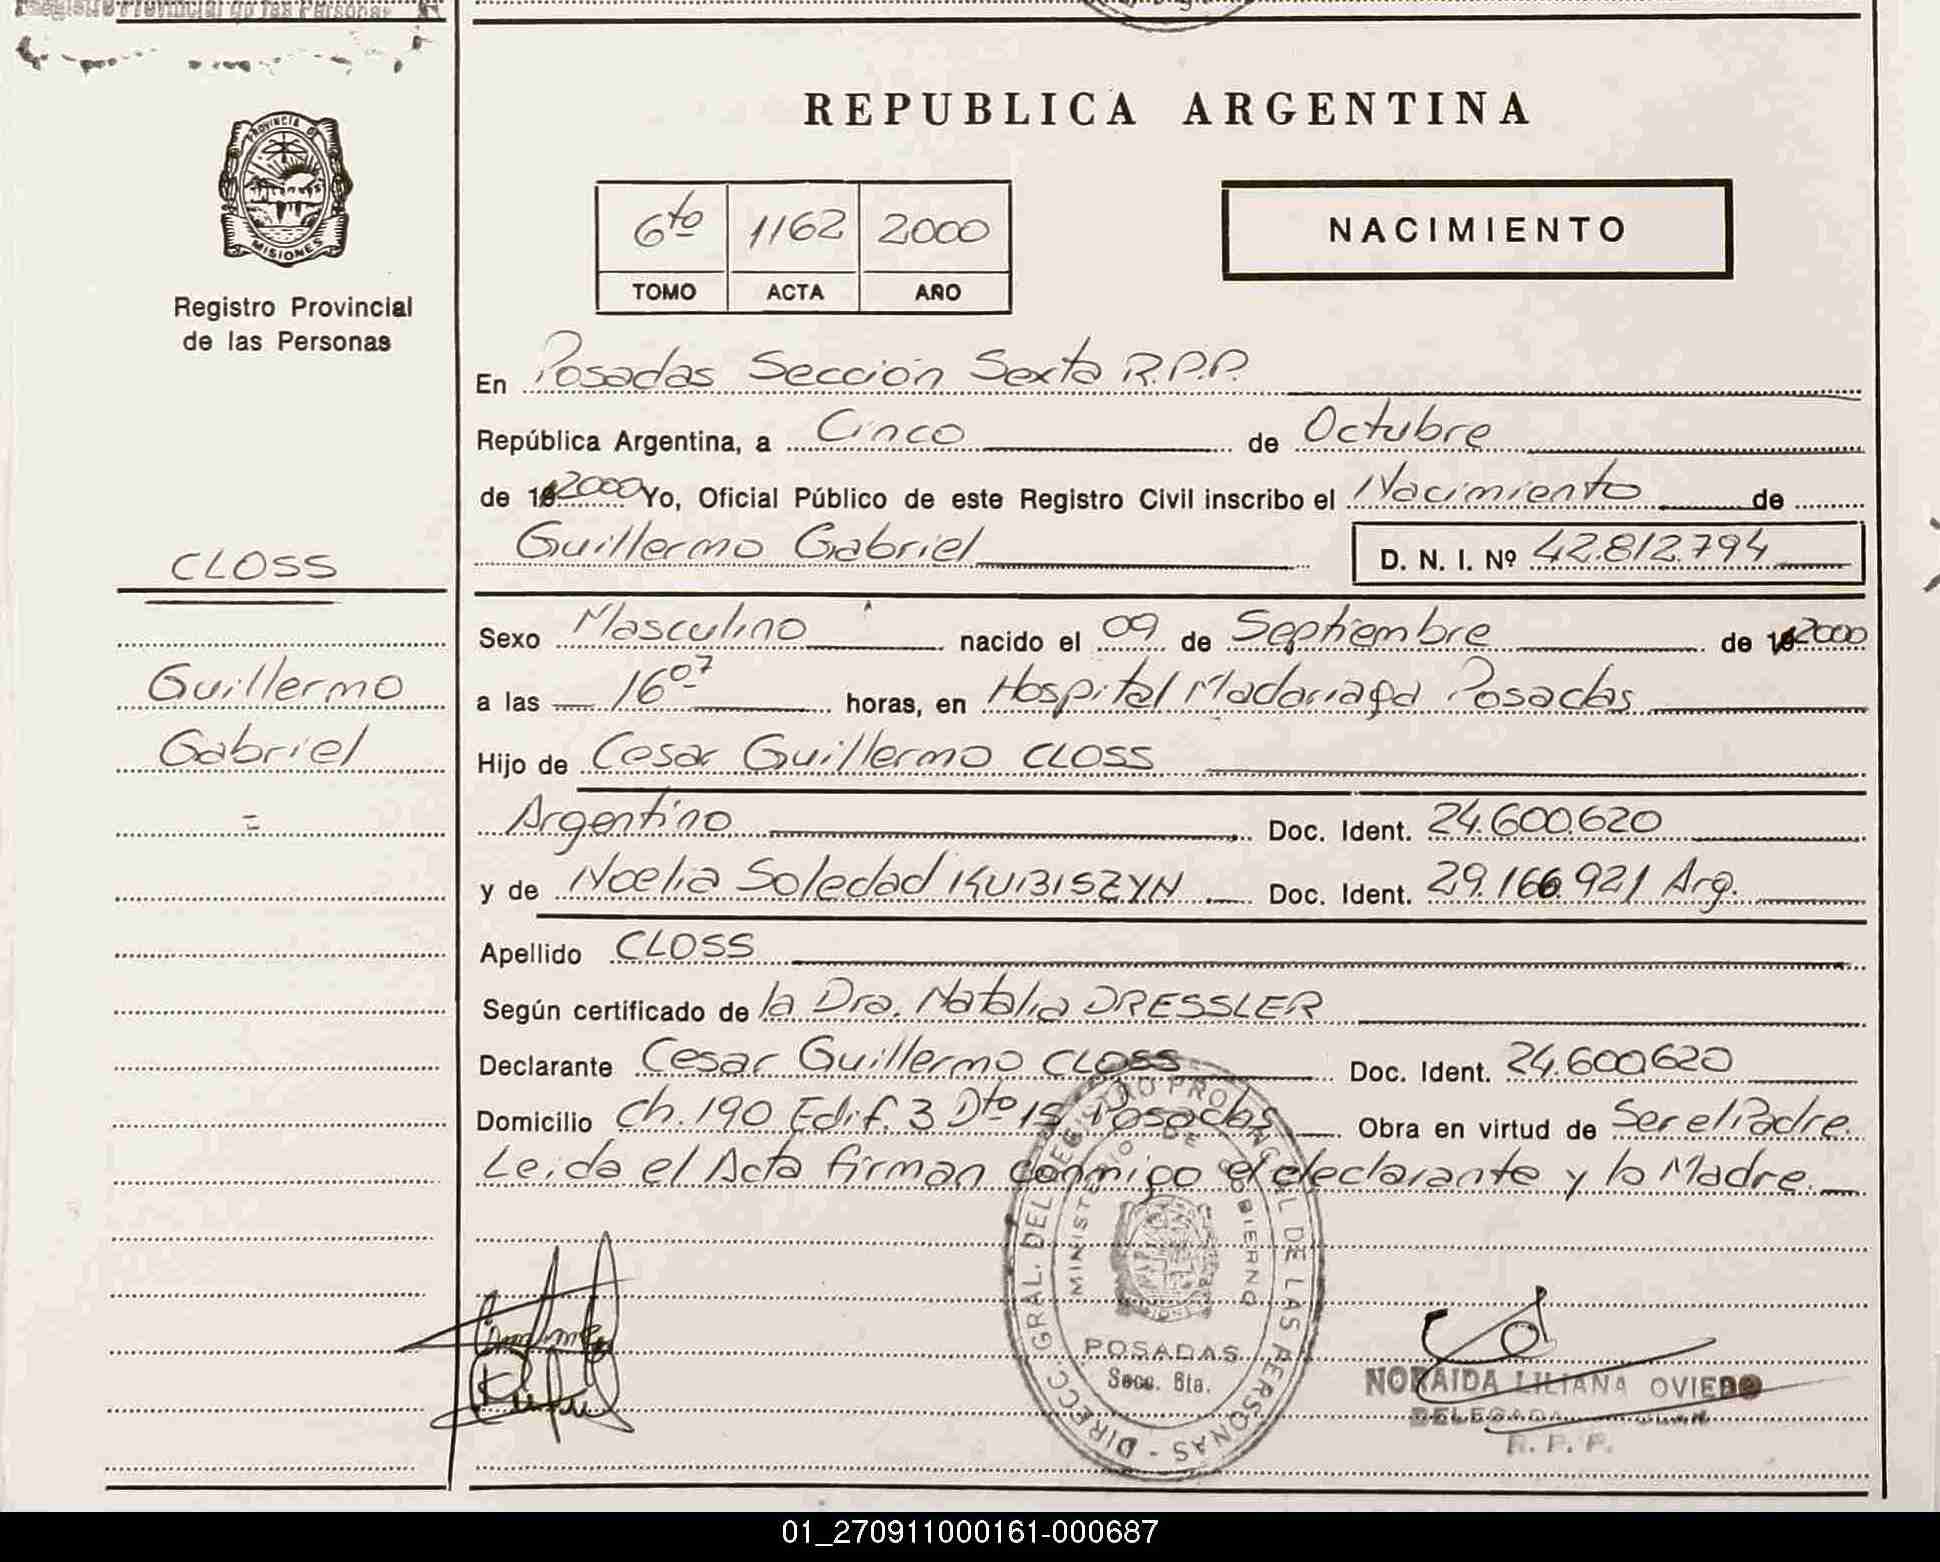 Registro Provincial de las Personas
PROVINCIA DE
MISIONES
Registro Provincial
de las Personas
CLOSS
Guillermo
Gabriel
=
REPUBLICA ARGENTINA
6to 1162 2000
TOMO ACTA AÑO
NACIMIENTO
En Posadas Sección Sexta R.P.P.
República Argentina, a Cinco de Octubre
de 2000 Yo, Oficial Público de este Registro Civil inscribo el Nacimiento de
Guillermo Gabriel D. N. I. Nº 42.812.794
Sexo Masculino nacido el 09 de Septiembre de 2000
a las 16 07 horas, en Hospital Madariaga Posadas
Hijo de Cesar Guillermo CLOSS
Argentino Doc. Ident. 24.600.620
y de Noelia Soledad KUBISZYN Doc. Ident. 29.166.921 Arg.
Apellido CLOSS
Según certificado de la Dra. Natalia DRESSLER
Declarante Cesar Guillermo CLOSS Doc. Ident. 24.600.620
Domicilio Ch. 190 Edif. 3 Dto 15 Posadas Obra en virtud de Ser el Padre.
Leida el Acta firman conmigo el declarante y la Madre.
DIRECC. GRAL. DEL REGISTRO PROVINCIAL DE LAS PERSONAS -
MINISTERIO DE GOBIERNO
POSADAS
Secc. 6ta.
NORAIDA LILIANA OVIEDO
DELEGADA
R. P. P.
01_270911000161-000687